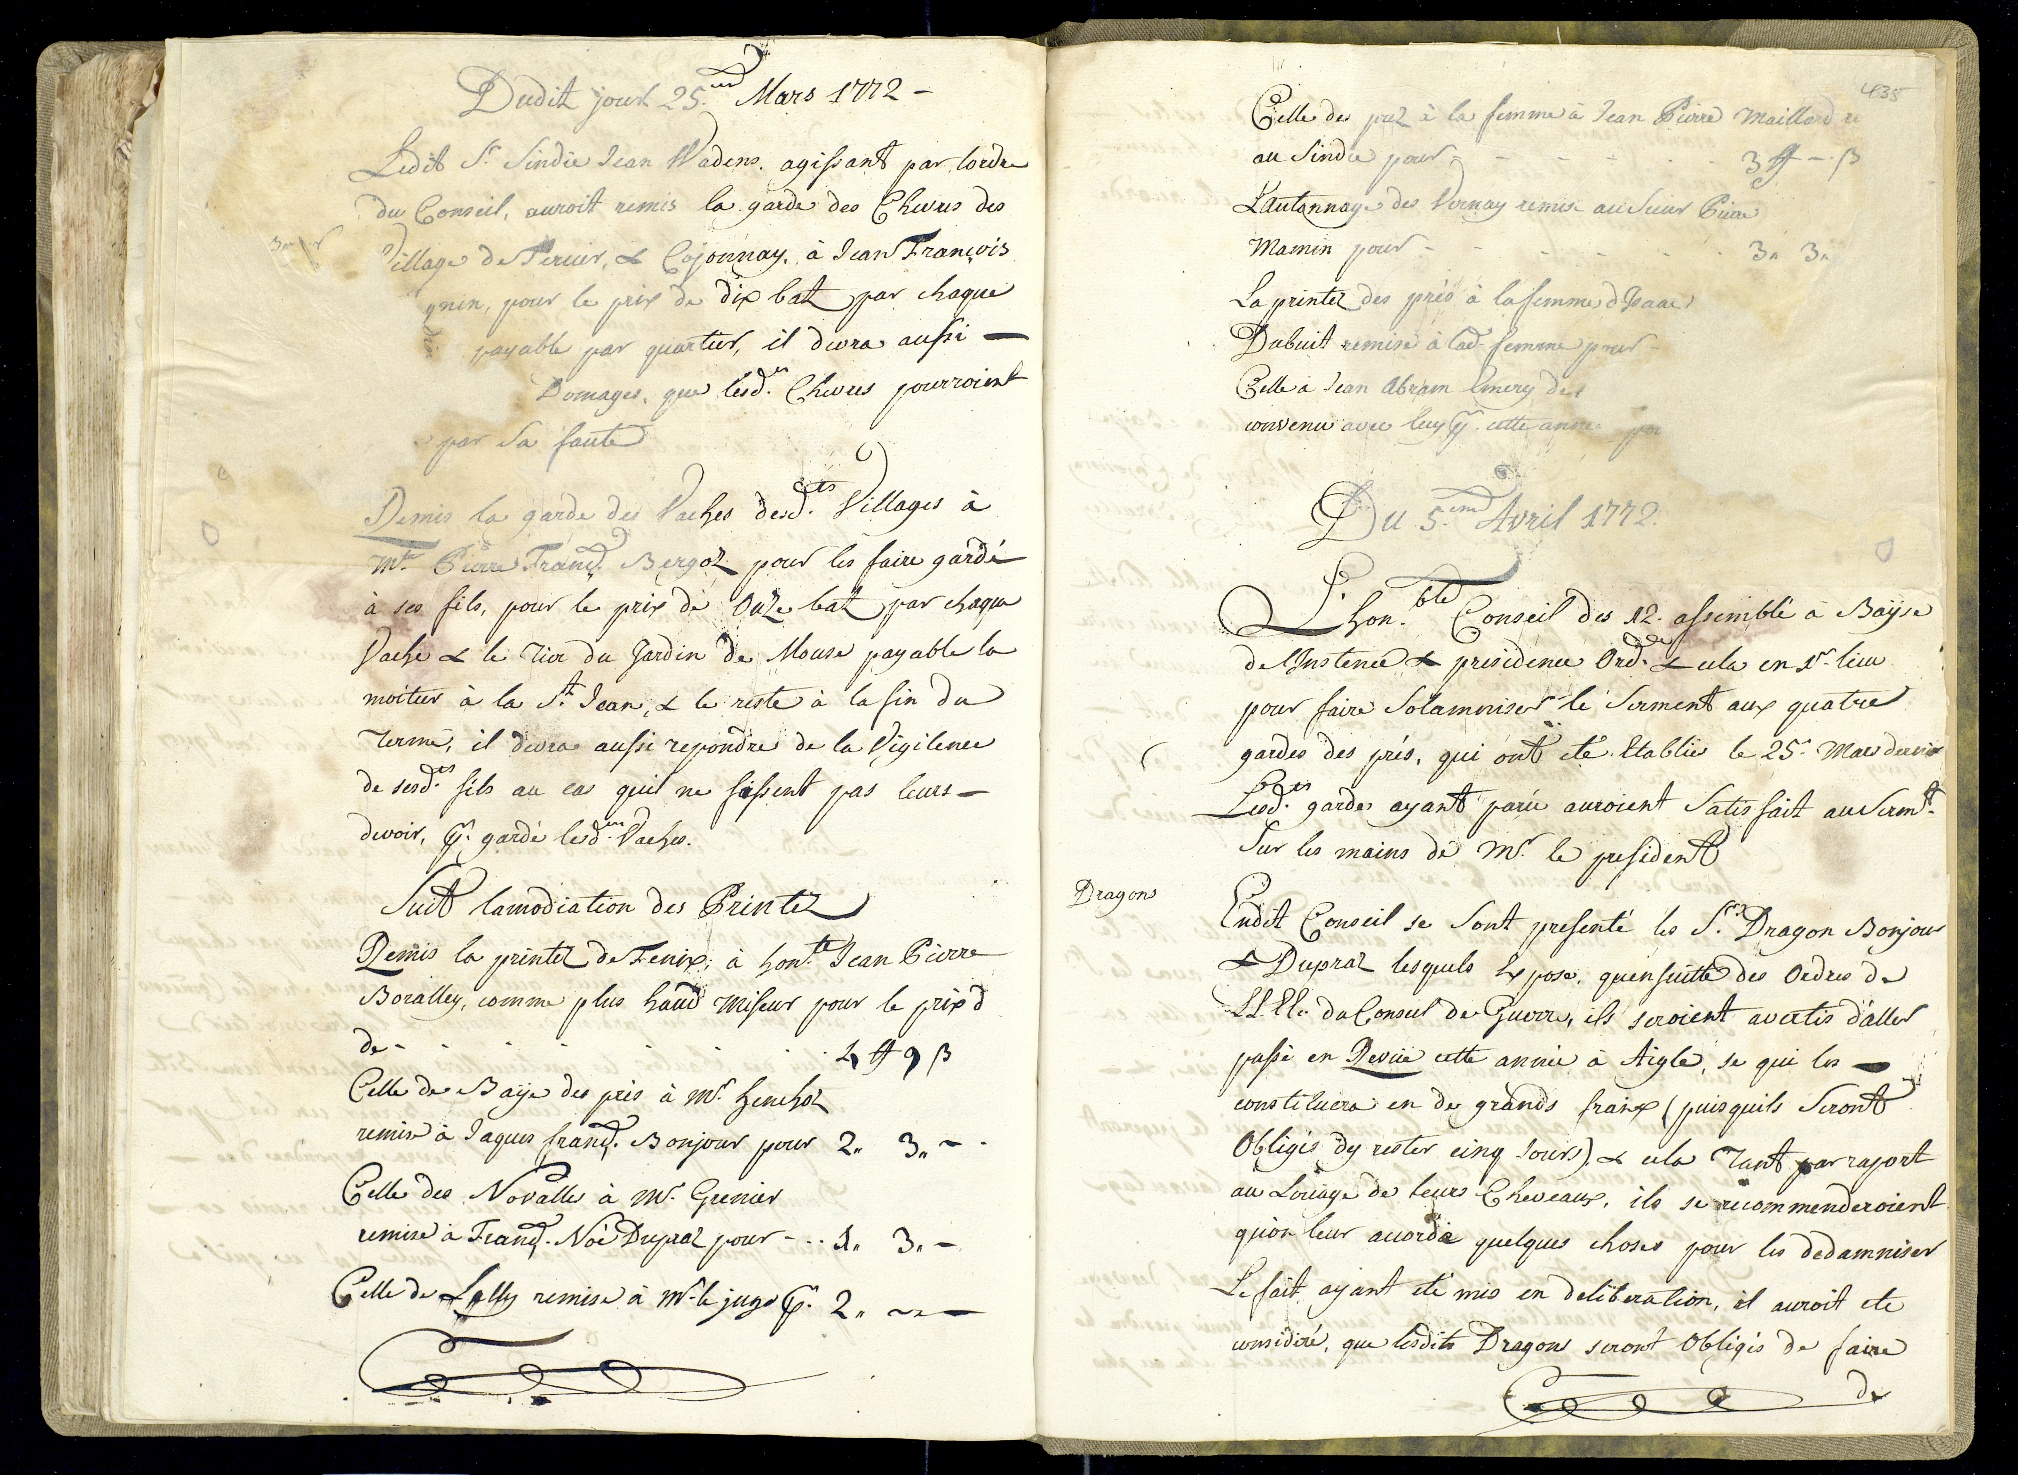 Dudit jour 25.me Mars 1772 -
Ledit Sr. Sindic Jean Wadens. agissant par lordre
du Conseil, auroit remis la garde des Chevres des
Village de Perier, & Cojonnay, à Jean François
gnin, pour le prix de dix batz par chaque
payable par quartier, il devra aussi —
Domages, que lesd.es Chevres pourroient
par sa faute
Remis la garde des Vaches desd.ts Villages à
Mr. Pierre Franç. Bergoz pour les faire gardé
à ses fils, pour le prix de Onze batz par chaque
Vache & le Tier du Jardin de Mouse payable la
moitier à la St. Jean, & le reste à la fin du
Terme, il devra aussi repondre de la Vigilence
de sesd.ts fils au cas quil ne fissent pas leurs —
devoir, pr. gardé lesd.es Vaches.
Suit lamodiation des Printez
Remis la printez de Fenix, à hon.te Jean Pierre
Boralley, comme plus haud miseur pour le prix d
de - 4 ff 9 β
Celle de Baÿe des prés à Mr. Genehoz
remise à Jaques franç. Bonjour pour 2,, 3,, -
Celle des Novalles à Mr. Grenier
remise à Franç. Noé Dupraz pour - - 1,, 3,, -
Celle de Lally remise à Mr. le juge pr. 2,, - -
435
Celle des prez à la femme à Jean Pierre Maillard re
au Sindic pour - 3 ff - β
L'autonnage des Vernay remise au Sieur Pierre
Mamin pour - 3,, 3,,
La printez des prés à la femme d'Isaac
Dubuit remise à lad. femme pour -
Celle à Jean Abram Emery des
convenu avec luy pr. cette année
Du 5.eme Avril 1772.
L'hon.ble Conseil des 12. assemblé à Baÿse
de l'Instence & presidence Ord. & cela en 1r. lieu
pour faire Solamniser le Serment aux quatre
gardes des prés, qui ont été Etablis le 25e. Mars dernier
Lesd.es gardes ayant parû auroient Satisfait au Serm.t
Sur les mains de Mr. le president
Dragons
Endit Conseil se Sont presenté les Srs. Dragon Bonjour
& Dupraz lesquels Expose, quensuitte des Ordres de
LL.EE. du Conseil de Guerre, ils seroient avertis d'aller
passé en Revüe cette année à Aigle, se qui les —
constituera en de grands fraix (puisquils Seront
Obligés dy rester cinq Jours), & cela Tant par raport
au Loüage de leurs Cheveaux, ils se recommenderoient
qu'on leur acorde quelques choses pour les dedamniser
Le fait ayant été mis en deliberation, il auroit ete
consideré, que lesdits Dragons seront Obligés de faire
de